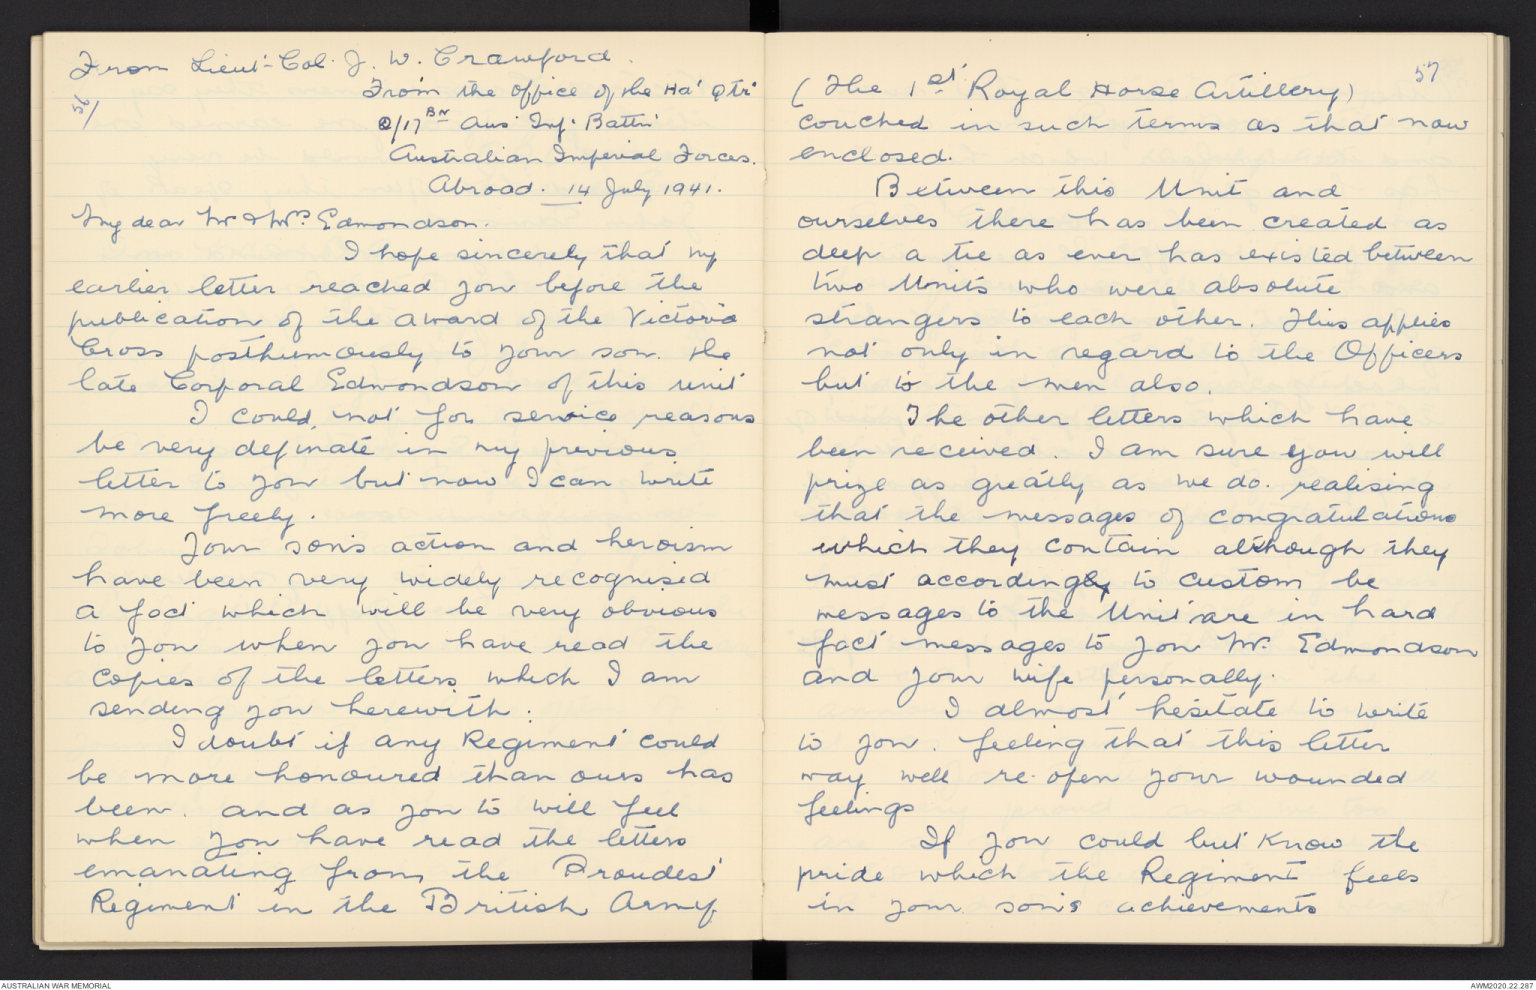 From Lieut-Col. J. W. Crawford.
56/
From the office of the Hd' Qtr'
2/17 BN Aus' Inf. Battn'
Australian Imperial Forces.
Abroad. 14 July 1941.
My dear Mr & Mrs Edmondson.
I hope sincerely that my
earlier letter reached you before the
publication of the award of the Victoria
Cross posthumously to your son. the
late Corporal Edmondson of this unit
I could, not for service reasons
be very definate in my previous
letter to you but now I can write
more freely.
Your son's action and heroism
have been very widely recognised
a fact which will be very obvious
to you when you have read the
copies of the letters which I am
sending you herewith.
I doubt if any Regiment could
be more honoured than ours has
been. and as you to will feel
when you have read the letters
emanating from the Proudest
Regiment in the British Army
57
(The 1st Royal Horse Artillery)
couched in such terms as that now
enclosed.
Between this Unit and
ourselves there has been created as
deep a tie as ever has existed between
two Units who were absolute
strangers to each other. This applies
not only in regard to the Officers
but to the men also.
The other letters which have
been received. I am sure you will
prize as greatly as we do. realising
that the messages of congratulations
which they contain although they
must accordingly to custom be
messages to the Unit are in hard
fact messages to you Mr. Edmondson
and your wife personally.
I almost hesitate to write
to you. feeling that this letter
may well re-open your wounded
feelings
If you could but know the
pride which the Regiment feels
in your son's achievements
AUSTRALIAN WAR MEMORIAL
AWM2020.22.287